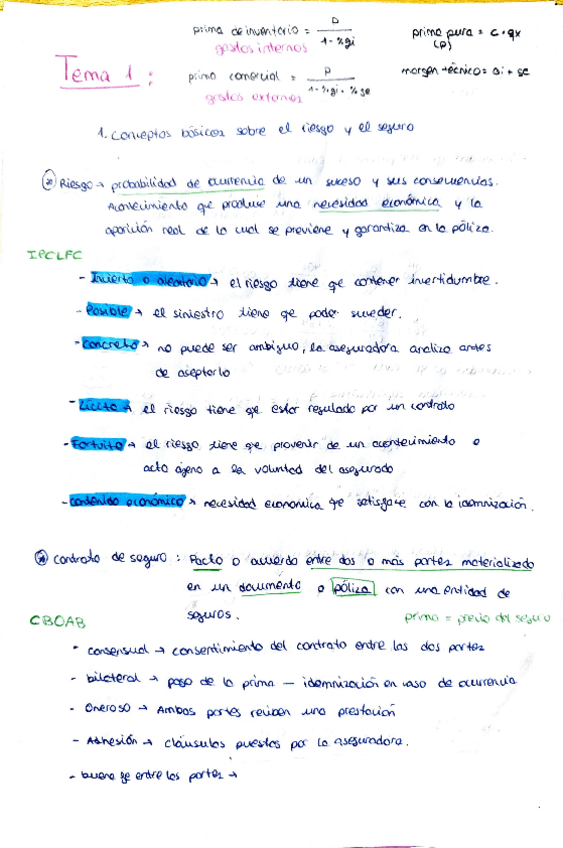 prima de inventario = P / 1 - %gi
gastos internos
prima pura = c · qx
(P)
Tema 1:
prima comercial = P / 1 - %gi - %ge
gastos externos
margen técnico = gi + ge
1. Conceptos básicos sobre el riesgo y el seguro
Riesgo → probabilidad de ocurrencia de un suceso y sus consecuencias.
Acontecimiento qe produce una necesidad económica y la
aparición real de la cual se previene y garantiza en la póliza.
IPCLFC
- Incierto o aleatorio → el riesgo tiene qe contener incertidumbre.
- Posible → el siniestro tiene qe poder suceder.
- Concreto → no puede ser ambiguo, la aseguradora analiza antes
de aceptarlo
- Lícito → el riesgo tiene qe estar regulado por un contrato
- Fortuito → el riesgo tiene qe provenir de un acontecimiento o
acto ajeno a la voluntad del asegurado
- contenido económico → necesidad economica qe satisface con la idemnización.
Contrato de seguro: Pacto o acuerdo entre dos o más partes materializado
en un documento o póliza con una entidad de
seguros.
prima = precio del seguro
CBOAB
- consensual → consentimiento del contrato entre las dos partes
- bilateral → pago de la prima — idemnización en caso de ocurrencia
- Oneroso → Ambas partes reciben una prestación
- Adhesión → cláusulas puestas por la aseguradora.
- buena fe entre las partes →